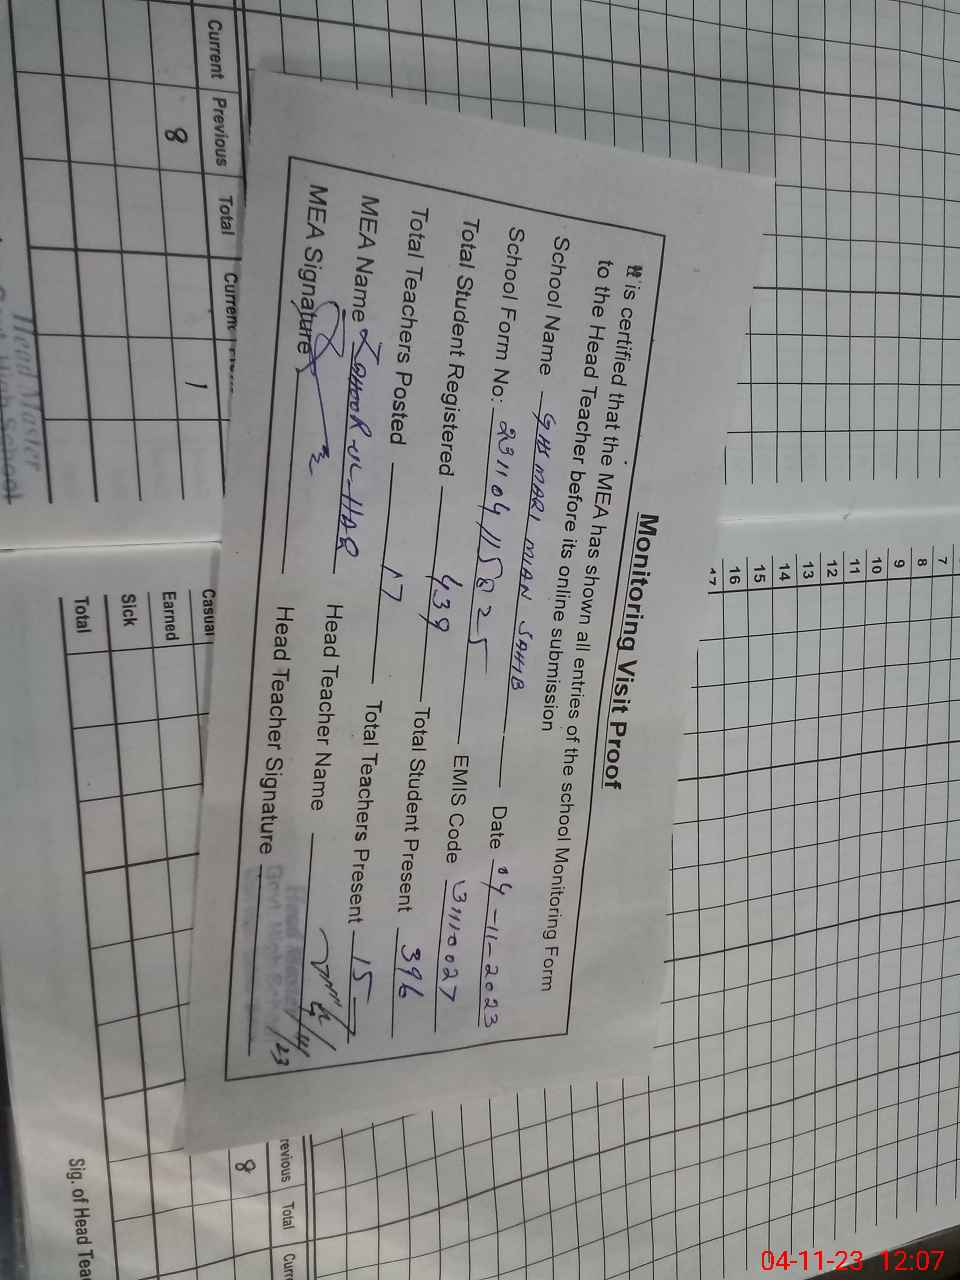 Monitoring Visit Proof
It is certified that the MEA has shown all entries of the school Monitoring Form
to the Head Teacher before its online submission
School Name GHS MARI MIAN SAHIB Date 04-11-2023
School Form No: 231104115825 EMIS Code 31110027
Total Student Registered 439 Total Student Present 396
Total Teachers Posted 17 Total Teachers Present 15
MEA Name ZAHOOR-UL-HAQ Head Teacher Name
MEA Signature Head Teacher Signature
Current Previous Total Current
8
1
Head Master
7
8
9
10
11
12
13
14
15
16
17
Casual
Earned
Sick
Total
revious Total Curr
8
Sig. of Head Tea
04-11-23 12:07